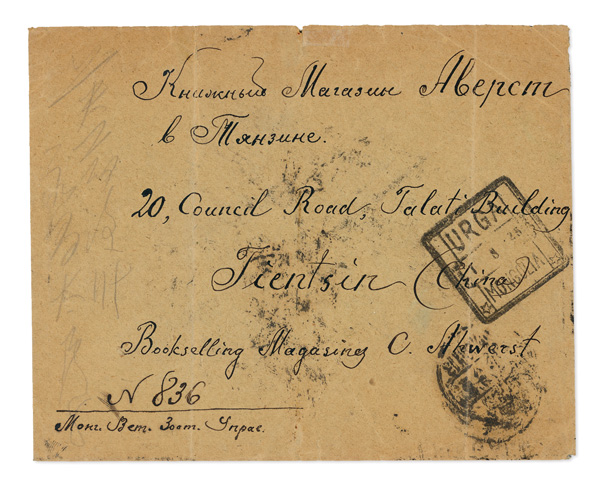 Книжный Магазин Аверст
в Тянзине.
20, Council Road, Talati Building
Tientsin China
Bookselling Magasing C. Awerst
N 836
Монг. Вет. Зоот. Упрас.
URGA
8 26
MONGOLIA